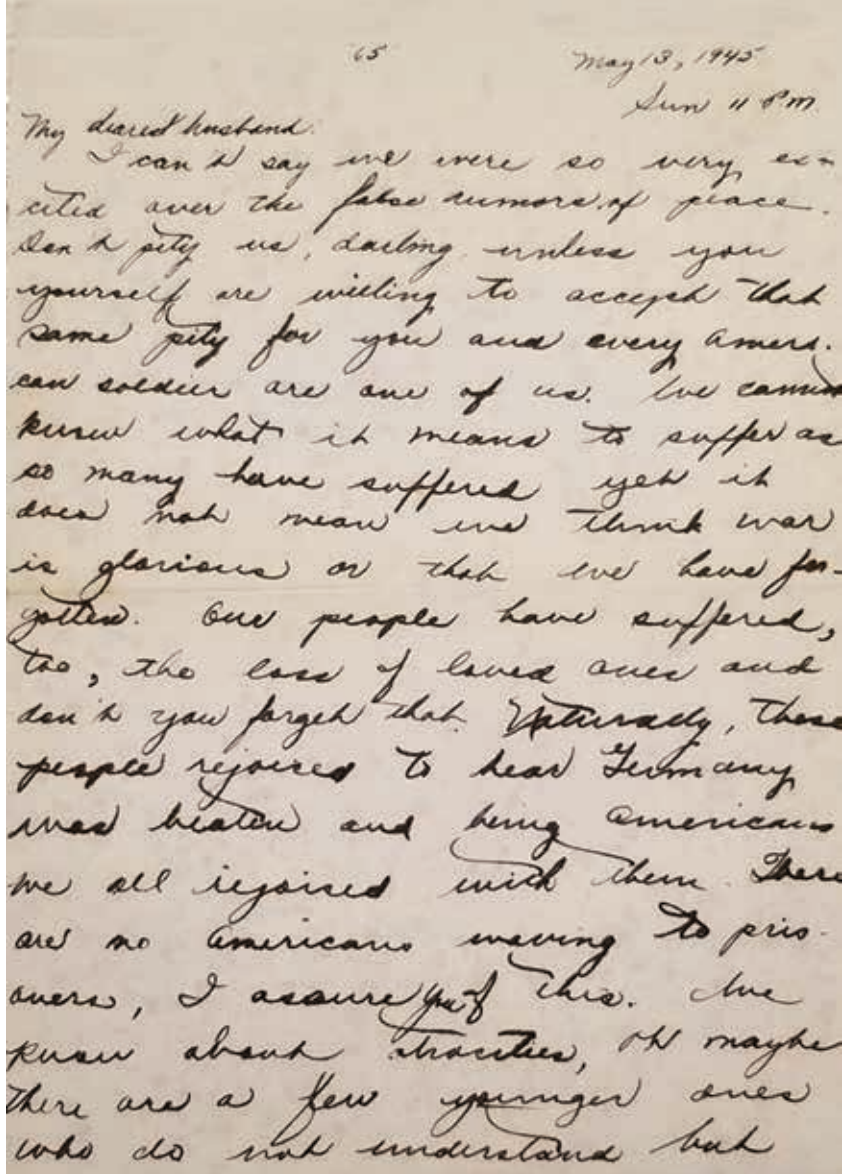 65
May 13, 1945
Sun 11 P.M.
My dearest husband:
I can't say we were so very ex-
cited over the false rumors of peace.
Don't pity us, darling unless you
yourself are willing to accept that
same pity for you and every Ameri-
can soldier are one of us. We cannot
know what it means to suffer as
so many have suffered yet it
does not mean we think war
is glorious or that we have for-
gotten. Our people have suffered,
too, the loss of loved ones and
don't you forget that. Naturally, these
people rejoiced to hear Germany
was beaten and being Americans
we all rejoiced with them. There
are no Americans waving to pris-
oners, I assure you of this. We
know about atrocities, oh maybe
there are a few younger ones
who do not understand but